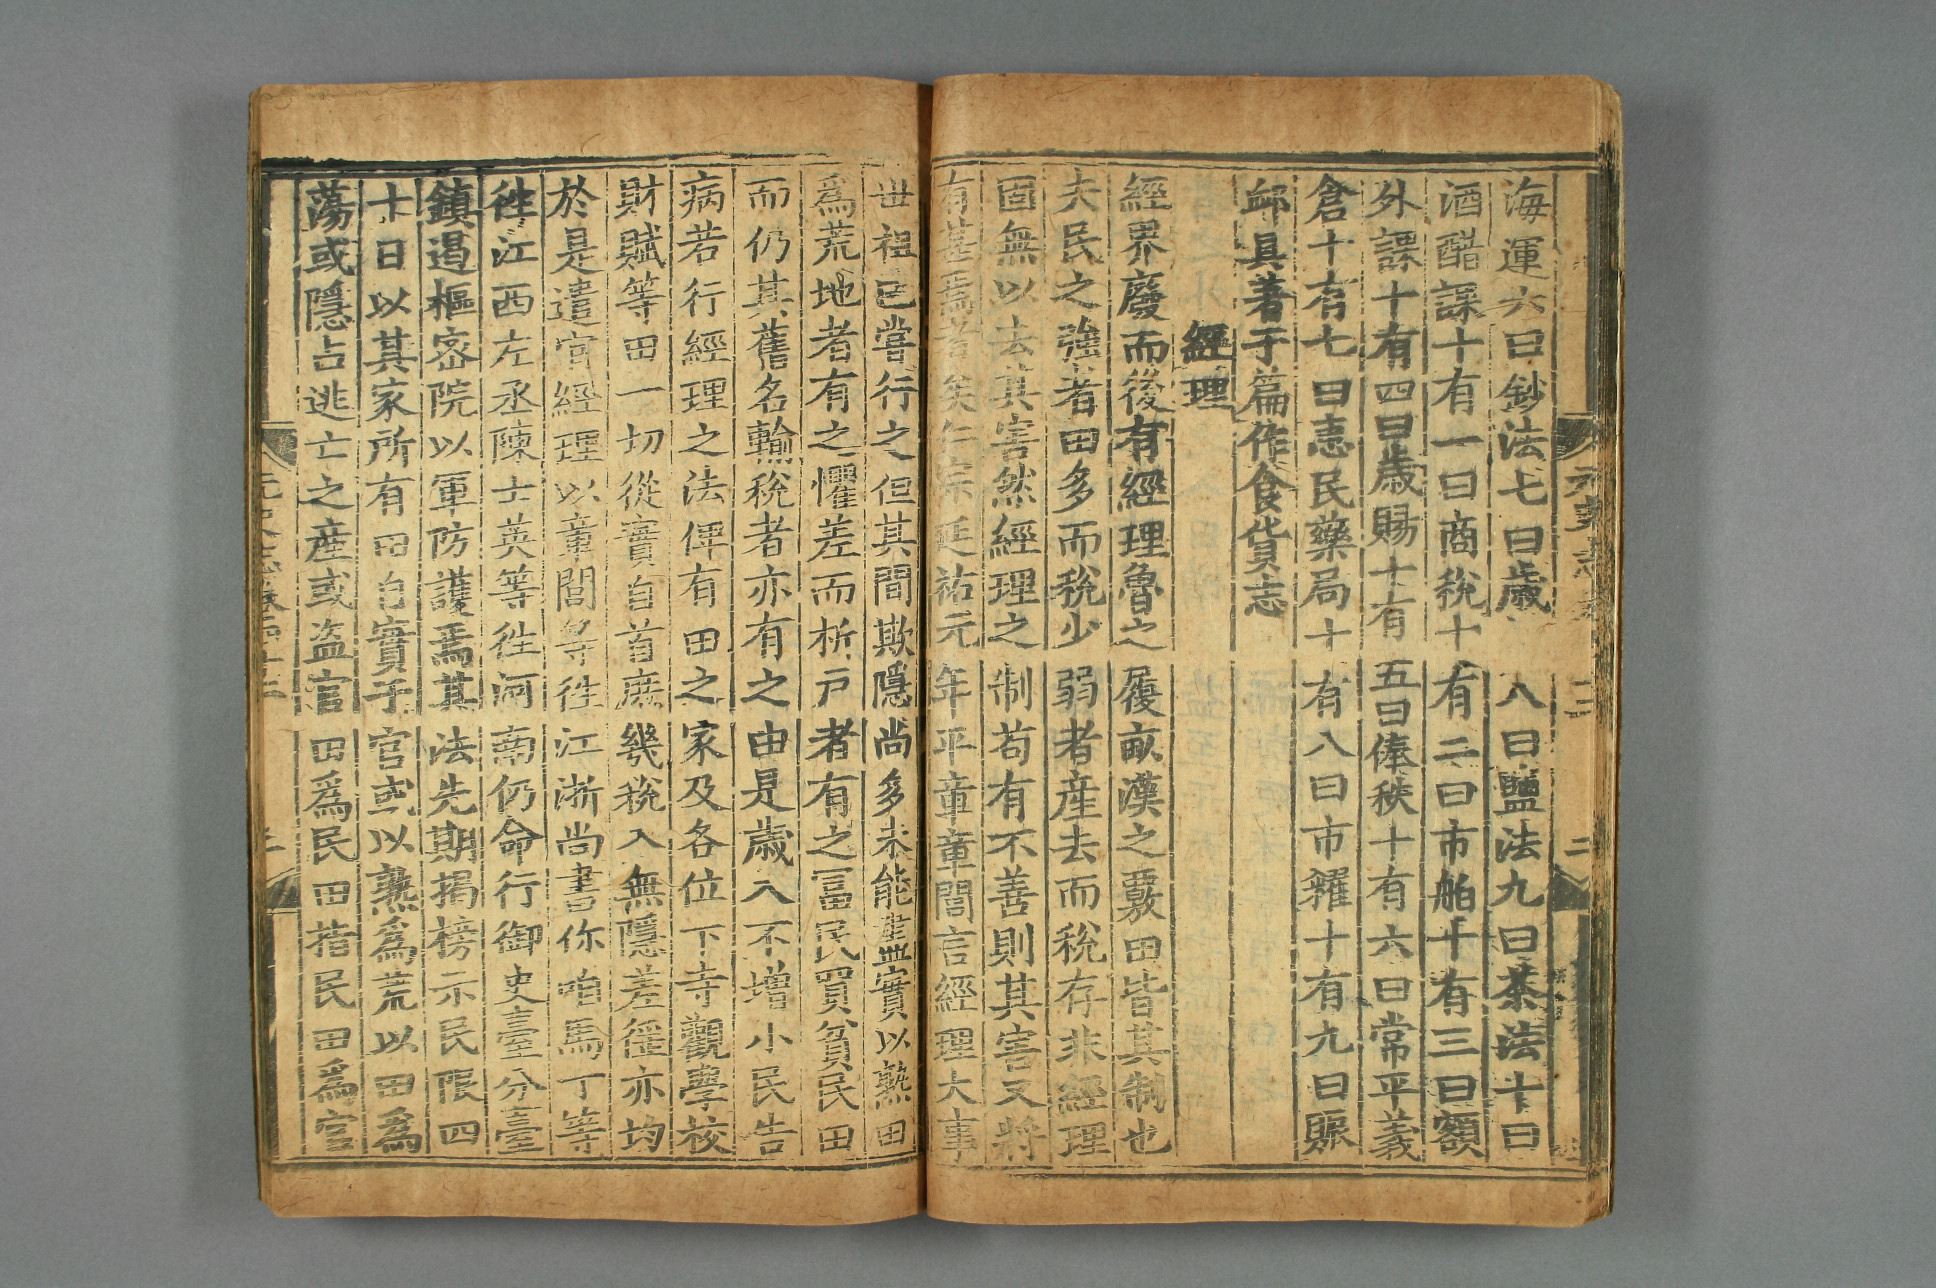 海運六曰鈔法七曰歲八曰鹽法九曰茶法十曰
酒醋課十有一曰商稅十有二曰市舶十有三曰額
外課十有四曰歲賜十有五曰俸秩十有六曰常平義
倉十有七曰惠民藥局十有八曰市糴十有九曰賑
卹具著于篇作食貨志
經理
經界廢而後有經理魯之履畝漢之覈田皆其制也
夫民之強者田多而稅少弱者產去而稅存非經理
固無以去其害然經理之制苟有不善則其害又將
有甚焉者矣仁宗延祐元年平章章閭言經理大事
世祖已嘗行之但其間欺隱尚多未能盡實以熟田
爲荒地者有之懼差而析戶者有之富民買貧民田
而仍其舊名輸稅者亦有之由是歲入不增小民告
病若行經理之法俾有田之家及各位下寺觀學校
財賦等田一切從實自首庶幾稅入無隱差徭亦均
於是遣官經理以章閭等往江浙尚書你咱馬丁等
往江西左丞陳士英等往河南仍命行御史臺分臺
鎮遏樞密院以軍防護焉其法先期揭榜示民限四
十日以其家所有田自實于官或以熟爲荒以田爲
蕩或隱占逃亡之產或盜官田爲民田指民田爲官
元史志卷四十三